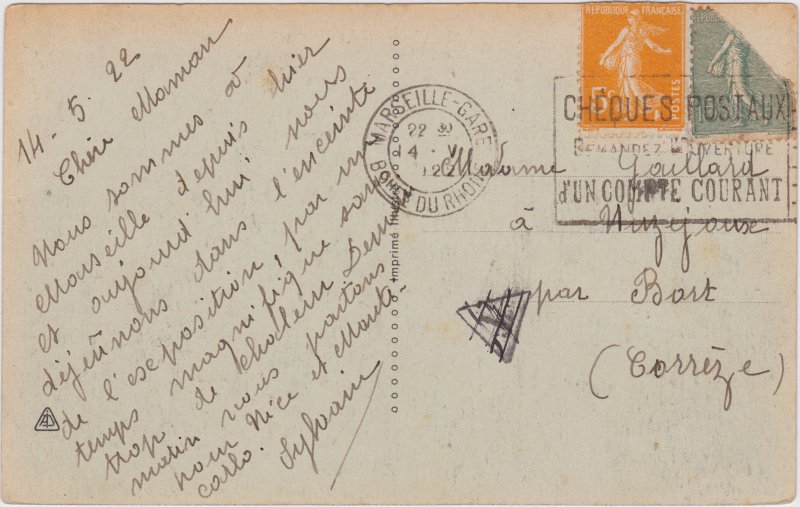 14-5.22
Chère Maman
Nous sommes à
Marseille depuis hier
et aujourd'hui nous
déjeûnons dans l'enceinte
de l'exposition, par un
temps magnifique sans
trop de chaleur Demain
matin nous partons
pour Nice et Monte-
carlo. Sylvain
Imprimé
REPUBLIQUE FRANÇAISE
5c
POSTES
MARSEILLE-GARE
22 30
4 - V
22
BCHES DU RHONE
CHÈQUES POSTAUX
DEMANDEZ L'OUVERTURE
D'UN COMPTE COURANT
Madame Gaillard
à Nuzejoux
par Bort
(Corrèze)
T